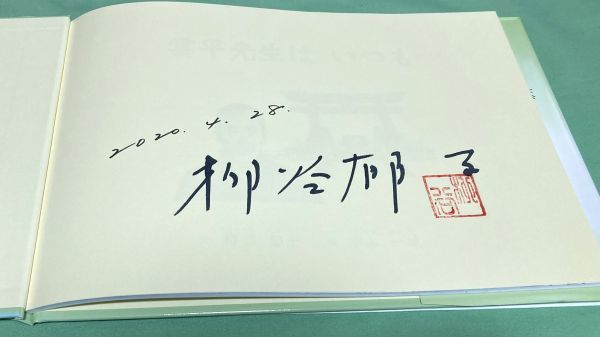 2020. 4. 28.
柳谷郁子
柳谷